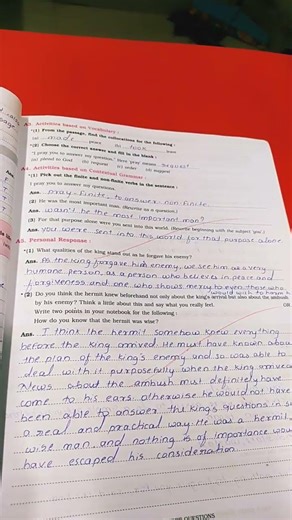 A3. Activities based on Vocabulary :
*(1) From the passage, find the collocations for the following :
(a) made peace (b) took from
*(2) Choose the correct answer and fill in the blank :
'I pray you to answer my question,' Here pray means request
(a) plead to God (b) request (c) order (d) suggest
A4. Activities based on Contextual Grammar :
*(1) Pick out the finite and non-finite verbs in the sentence :
I pray you to answer my question.
Ans. pray - finite, to answer - non finite.
(2) He was the most important man. (Rewrite as a question.)
Ans. Wasn't he the most important man?
(3) For that purpose alone were you sent into this world. (Rewrite beginning with the subject 'you'.)
Ans. You were sent into this world for that purpose alone
A5. Personal Response :
*(1) What qualities of the king stand out as he forgave his enemy?
Ans. As the king forgave his enemy, we see him as a very
humane person, as a person who believes in peace and
forgiveness and one who shows mercy to even those who
would
*(2) Do you think the hermit knew beforehand not only about the king's arrival but also about the ambush
by his enemy? Think a little about this and say what you really feel. OR
Write two points in your notebook for the following :
How do you know that the hermit was wise?
Ans. I think the hermit somehow knew everything
before the king arrived. He must have known about
the plan of the king's enemy and so was able to
deal with it purposefully when the king arrived
News about the ambush must definitely have
come to his ears otherwise he would not have
been able to answer the king's questions in su
a real and practical way. He was a hermit,
wise man, and nothing is of importance wou
have escaped his consideration.
QUESTIONS